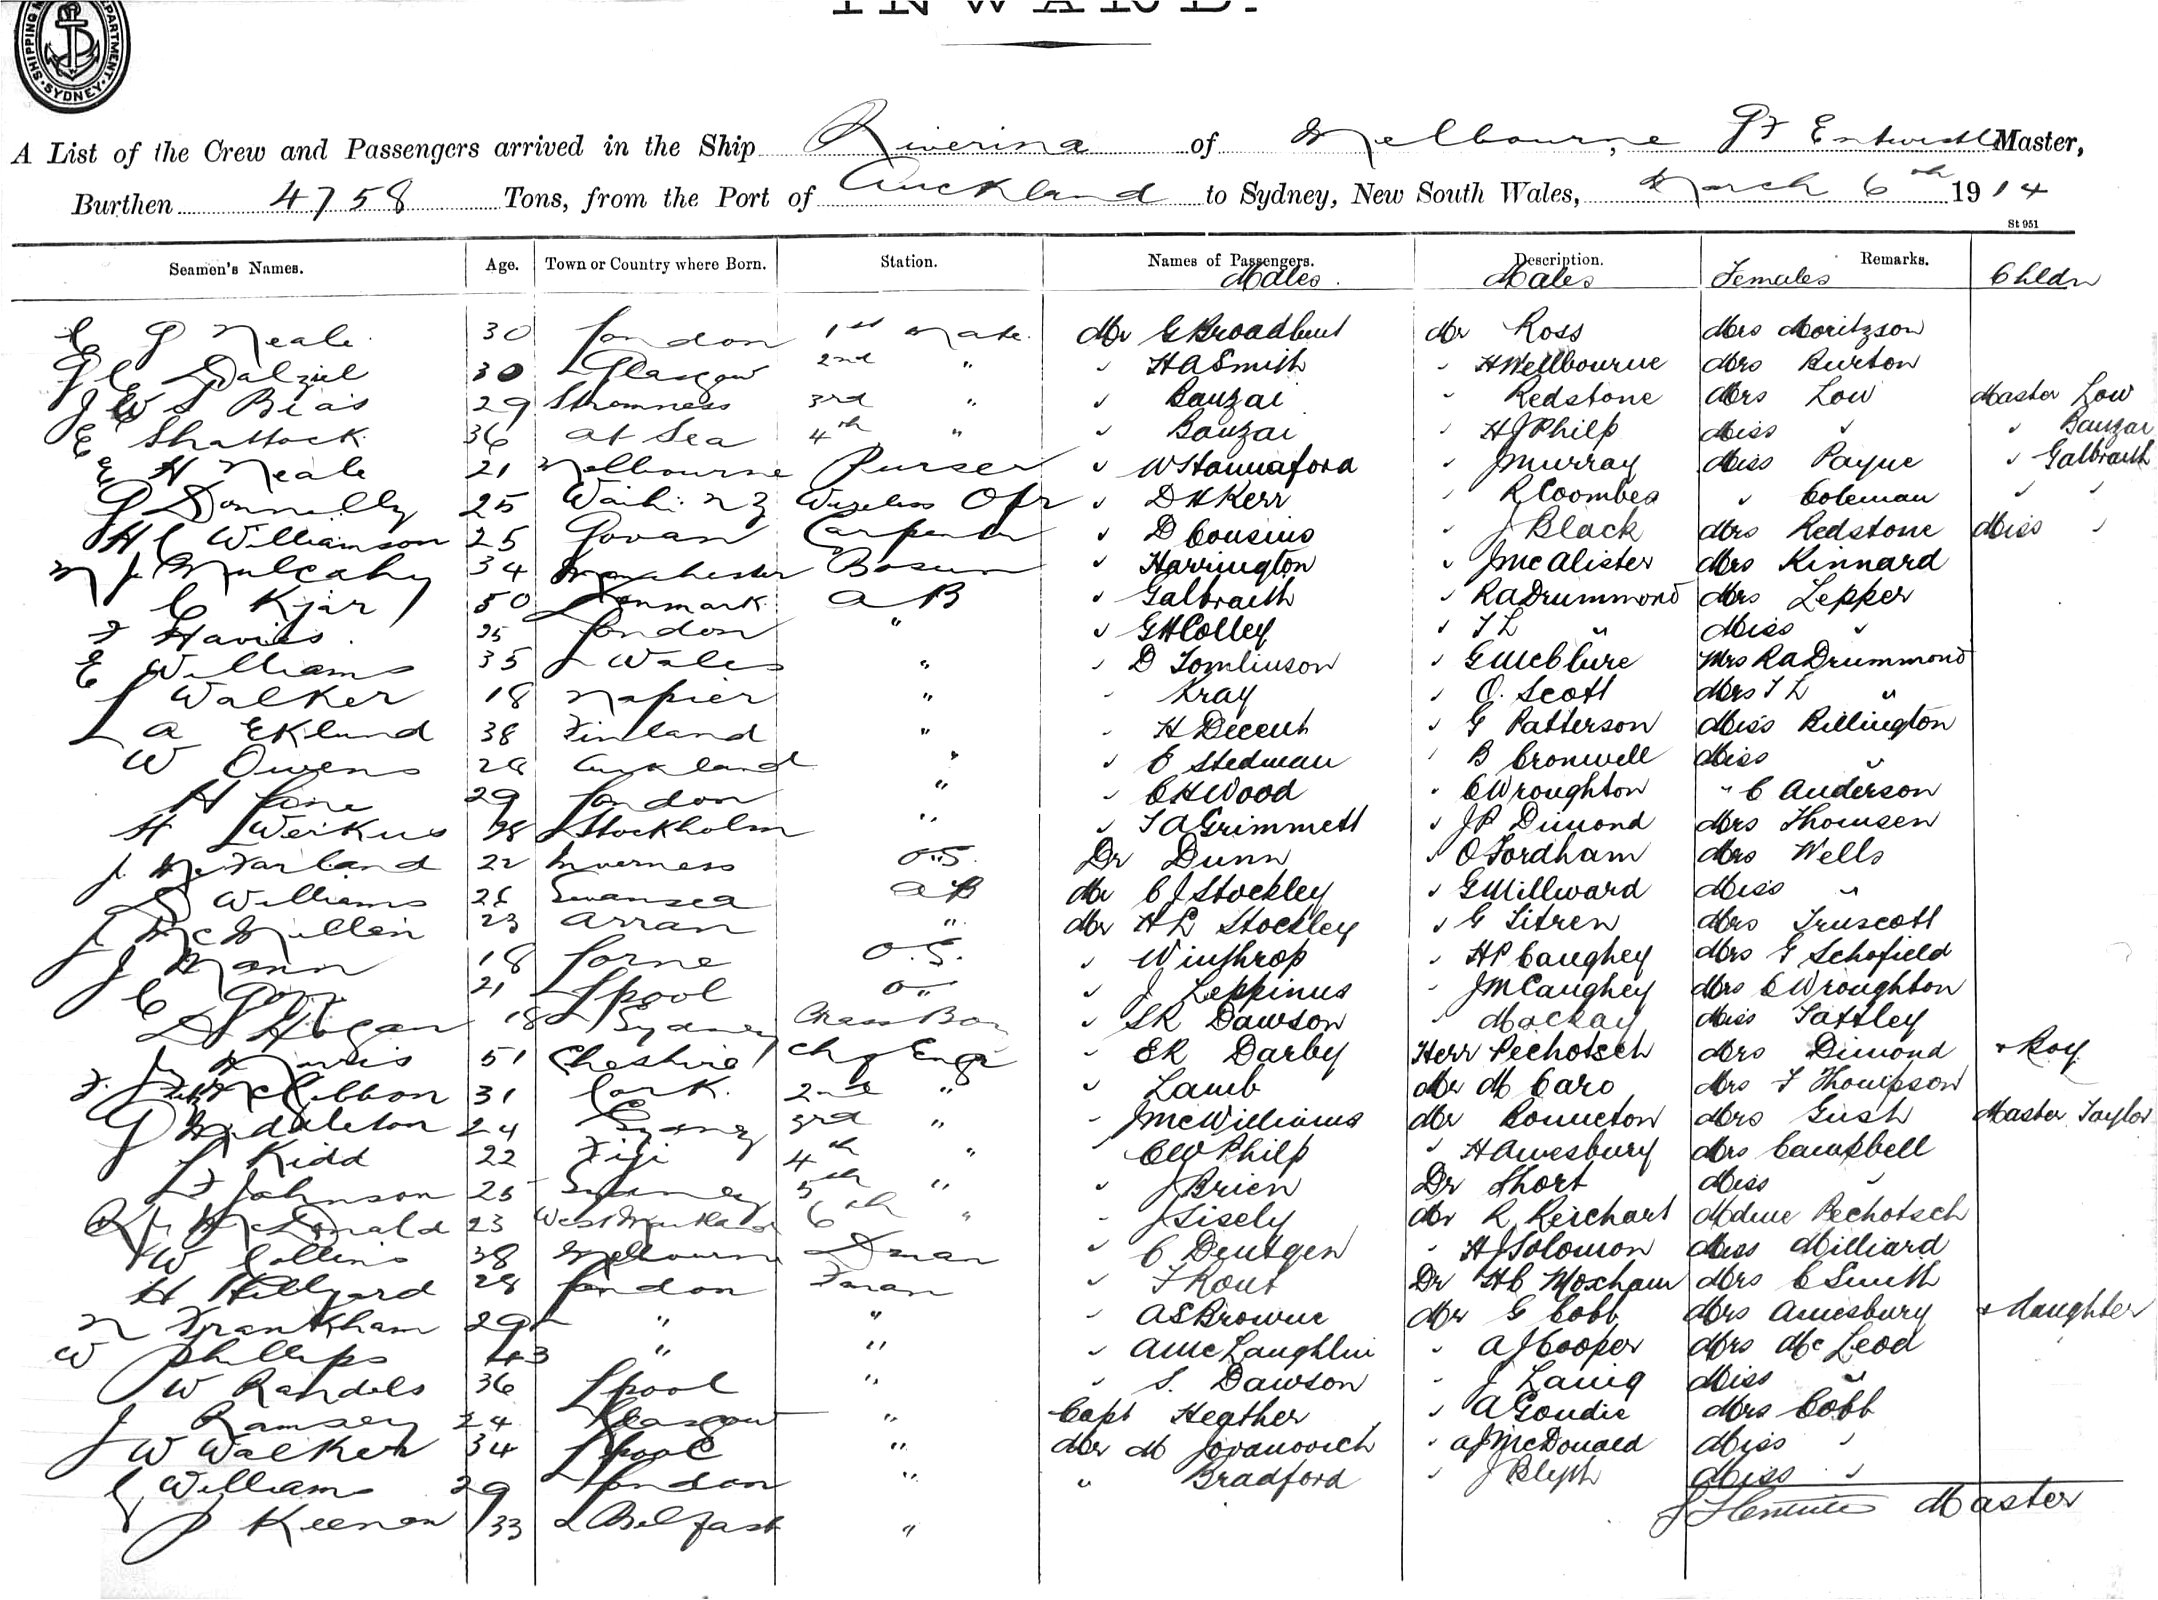 INWARD.
SHIPPING DEPARTMENT SYDNEY
A List of the Crew and Passengers arrived in the Ship Riverina of Melbourne, Entwistle Master,
Burthen 4758 Tons, from the Port of Auckland to Sydney, New South Wales, March 6th 1914
St 951
Seamen's Names. Age. Town or Country where Born. Station. Names of Passengers. Description. Remarks.
Males. Males Females Chldn
C G Neale 30 London 1st Mate. Mr G Broadbent Mr Ross Mrs Moritzson
G C Dalziel 30 Glasgow 2nd " " H A Smith " H Wellbourne Mrs Burton
J W S Bias 29 Stromness 3rd " " Banzai " Redstone Mrs Low Master Low
E Shattock 36 At Sea 4th " " Banzai " H J Philp Miss " " Banzai
E H Neale 21 Melbourne Purser " W Stannaford " J Murray Miss Payne " Galbraith
G Donnelly 25 Waihi N Z Wireless Ofr " D K Kerr " R Coombes " Coleman " "
H C Williamson 25 Govan Carpenter " D Cousins " J Black Mrs Redstone Miss "
M J Mulcahy 34 Manchester Bosun " Harrington " J McAlister Mrs Kinnard
C Kjar 50 Denmark A B " Galbraith " R A Drummond Mrs Lepper
Havies 25 London " " G H Colley " T L " Miss "
E Williams 35 Wales " " D Tomlinson " G McClure Mrs R A Drummond
Walker 18 Napier " " Kray " O. Scott Mrs T L "
A Eklund 38 Finland " " H Decent " G Patterson Miss Rillington
W Owens 28 Auckland " " E Stedman " B Cronwell Miss "
H Lane 29 London " " C H Wood " C Wroughton " C Anderson
H Weikus 28 Stockholm " " T A Grimmett " J P Dimond Mrs Thomsen
J McFarland 22 Inverness O.S. Dr Dunn " O Fordham Mrs Wells
Williams 26 Swansea A B Mr C J Stockley " G Millward Miss "
J McMillen 23 Arran " Mr H L Stockley " G Titren Mrs Truscott
J Mann 18 Lorne O.S. " Winthrop " H P Caughey Mrs G Schofield
C 21 Lpool O " " J Leppinus " J M Caughey Mrs C Wroughton
Hogan 18 Sydney Mess Boy " S R Dawson " Mackay Miss Tattley
J 51 Cheshire Chf Engr " E R Darby Herr Pechotsch Mrs Dimond & Boy
McGibbon 31 Cork. 2nd " " Lamb Mr M Caro Mrs F Thompson
G Middleton 24 Sydney 3rd " " J McWilliams Mr Rounceton Mrs Gush Master Taylor
Kidd 22 Fiji 4th " " C W Philp " H Amesbury Mrs Campbell
Johnson 25 Sydney 5th " " J Brien Dr Short Miss "
McDonald 23 West Maitland 6th " " J Sisely Mr R Reichart Mdme Pechotsch
W Collins 38 Melbourne " C Dentgen " H J Solomon Miss Milliard
H Hillyard 28 London " T Rout Dr H C Moxham Mrs C Smith
N Frankham 29 " " " A S Browne Mr G Cobb Mrs Amesbury & daughter
W Phillips 43 " " " A McLaughlin " A J Cooper Mrs McLeod
W Randels 36 Lpool " " S. Dawson " J Laing Miss "
J Ramsey 24 Glasgow " Capt Heather " A Goudie Mrs Cobb
W Walker 34 Lpool " Mr M Jovanovich " A J McDonald Miss "
Williams 29 London " " Bradford " J Blyth Miss "
J Keenan 33 Belfast "
Master